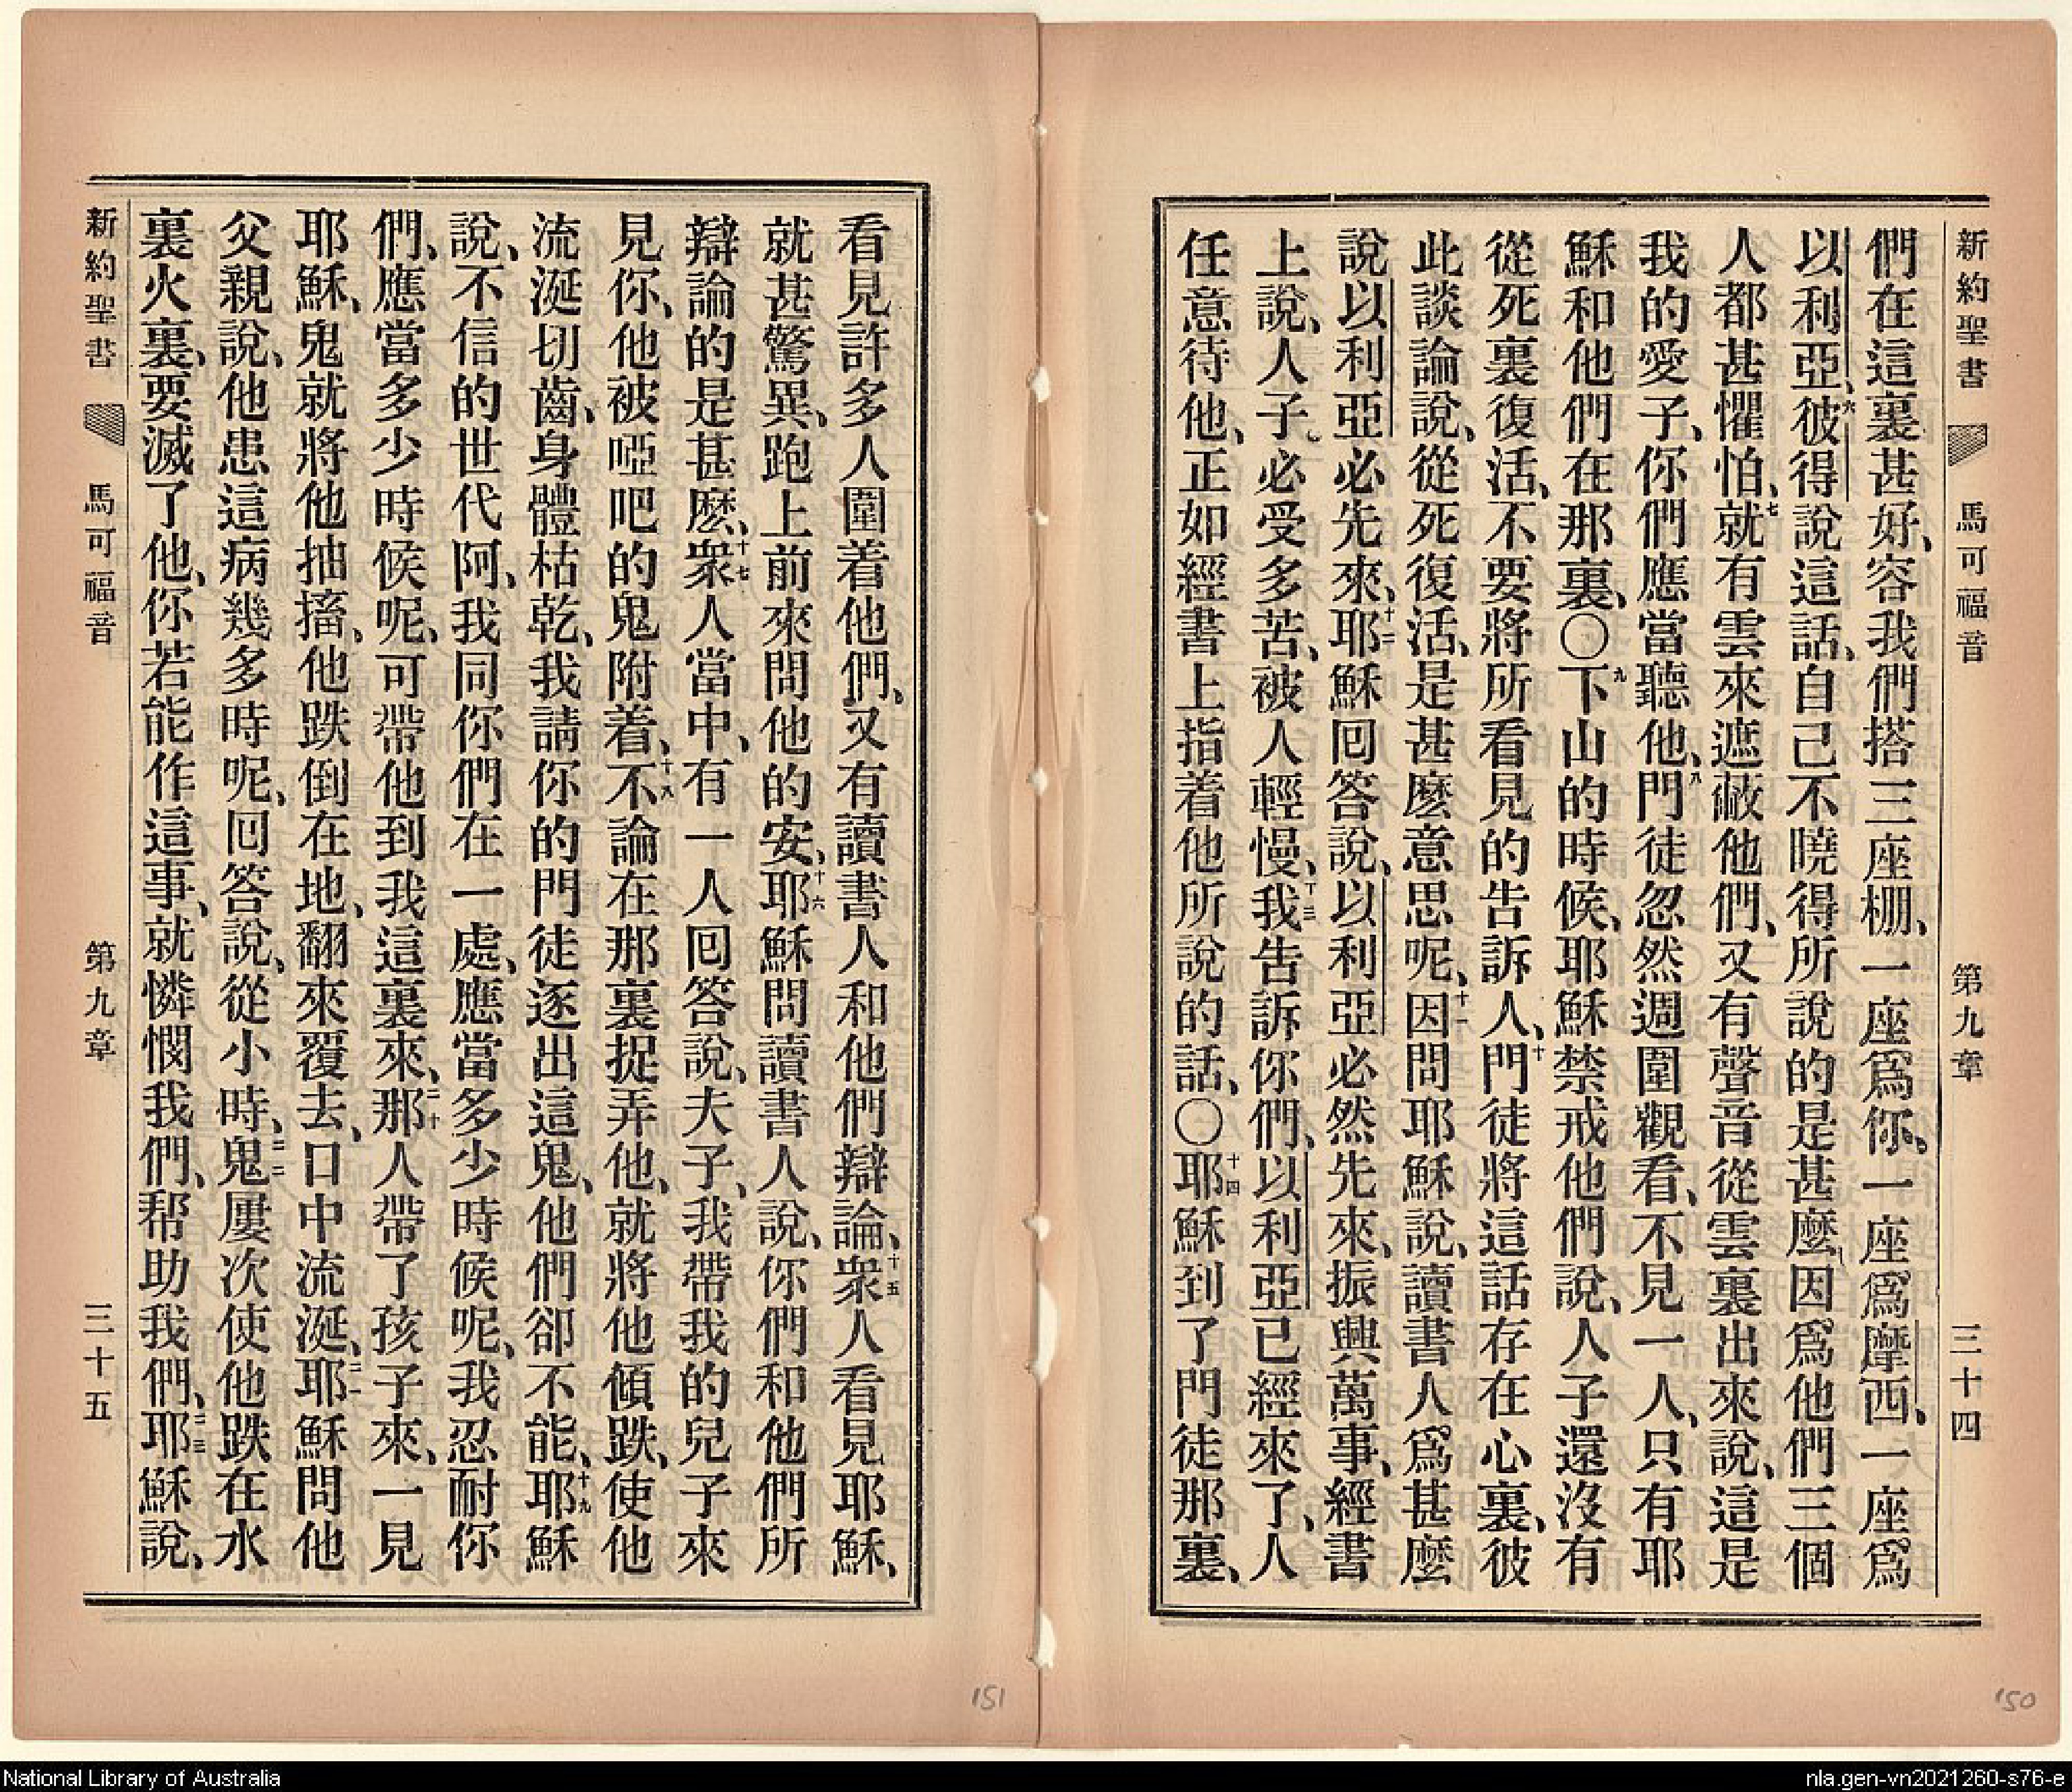 新約聖書 馬可福音 第九章 三十四
們在這裏甚好、容我們搭三座棚、一座爲你、一座爲摩西、一座爲
以利亞、六彼得說這話、自己不曉得所說的是甚麼、因爲他們三個
人都甚懼怕、七就有雲來遮蔽他們、又有聲音從雲裏出來說、這是
我的愛子、你們應當聽他、八門徒忽然週圍觀看、不見一人、只有耶
穌和他們在那裏、〇九下山的時候、耶穌禁戒他們說、人子還沒有
從死裏復活、不要將所看見的告訴人、十門徒將這話存在心裏、彼
此談論說、從死復活、是甚麼意思呢、十一因問耶穌說、讀書人爲甚麼
說以利亞必先來、十二耶穌囘答說、以利亞必然先來、振興萬事、經書
上說、人子必受多苦、被人輕慢、十三我告訴你們、以利亞已經來了、人
任意待他、正如經書上指着他所說的話、〇十四耶穌到了門徒那裏、
150
看見許多人圍着他們、又有讀書人和他們辯論、十五衆人看見耶穌、
就甚驚異、跑上前來問他的安、十六耶穌問讀書人說、你們和他們所
辯論的是甚麼、十七衆人當中、有一人囘答說、夫子、我帶我的兒子來
見你、他被啞吧的鬼附着、十八不論在那裏捉弄他、就將他傾跌、使他
流涎切齒、身體枯乾、我請你的門徒逐出這鬼、他們卻不能、十九耶穌
說、不信的世代阿、我同你們在一處、應當多少時候呢、我忍耐你
們、應當多少時候呢、可帶他到我這裏來、二十那人帶了孩子來、一見
耶穌、鬼就將他抽搐、他跌倒在地、翻來覆去、口中流涎、二一耶穌問他
父親說、他患這病幾多時呢、囘答說、從小時、二二鬼屢次使他跌在水
裏火裏、要滅了他、你若能作這事、就憐憫我們、帮助我們、二三耶穌說、
新約聖書 馬可福音 第九章 三十五
151
National Library of Australia
nla.gen-vn2021260-s76-e